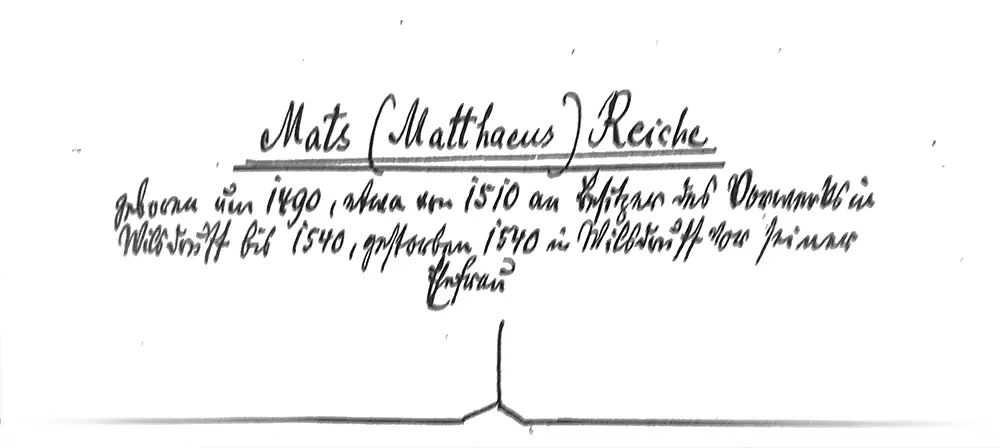 Mats (Matthaeus) Reiche
geboren um 1490, etwa von 1510 an Besitzer des Vorwerks in
Wilsdruff bis 1540, gestorben 1540 in Wilsdruff vor seiner
Ehefrau